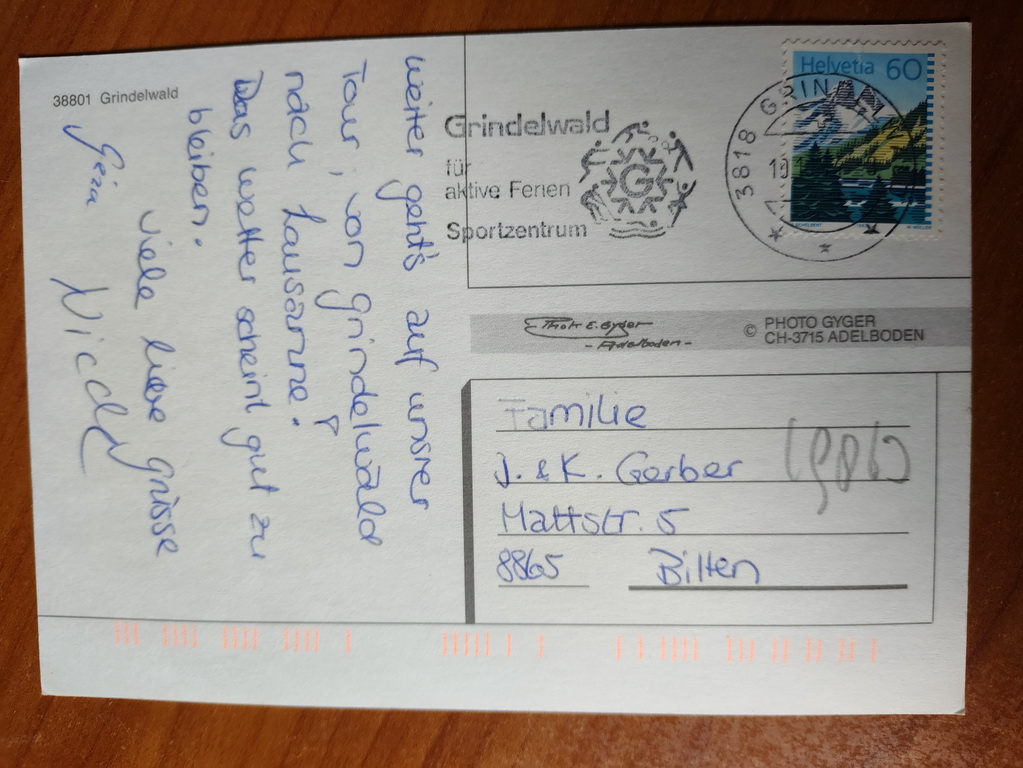 38801 Grindelwald
weiter geht's auf unsrer
Tour, von Grindelwald
nach Lausanne.
Das wetter scheint gut zu
bleiben.
viele liebe grüsse
Grindelwald
für
aktive Ferien
Sportzentrum
Helvetia 60
3818 GRIN
PHOTO GYGER
© CH-3715 ADELBODEN
Photo E. Gyger
- Adelboden -
Familie
J. & K. Gerber
Mattstr. 5
8865 Bilten